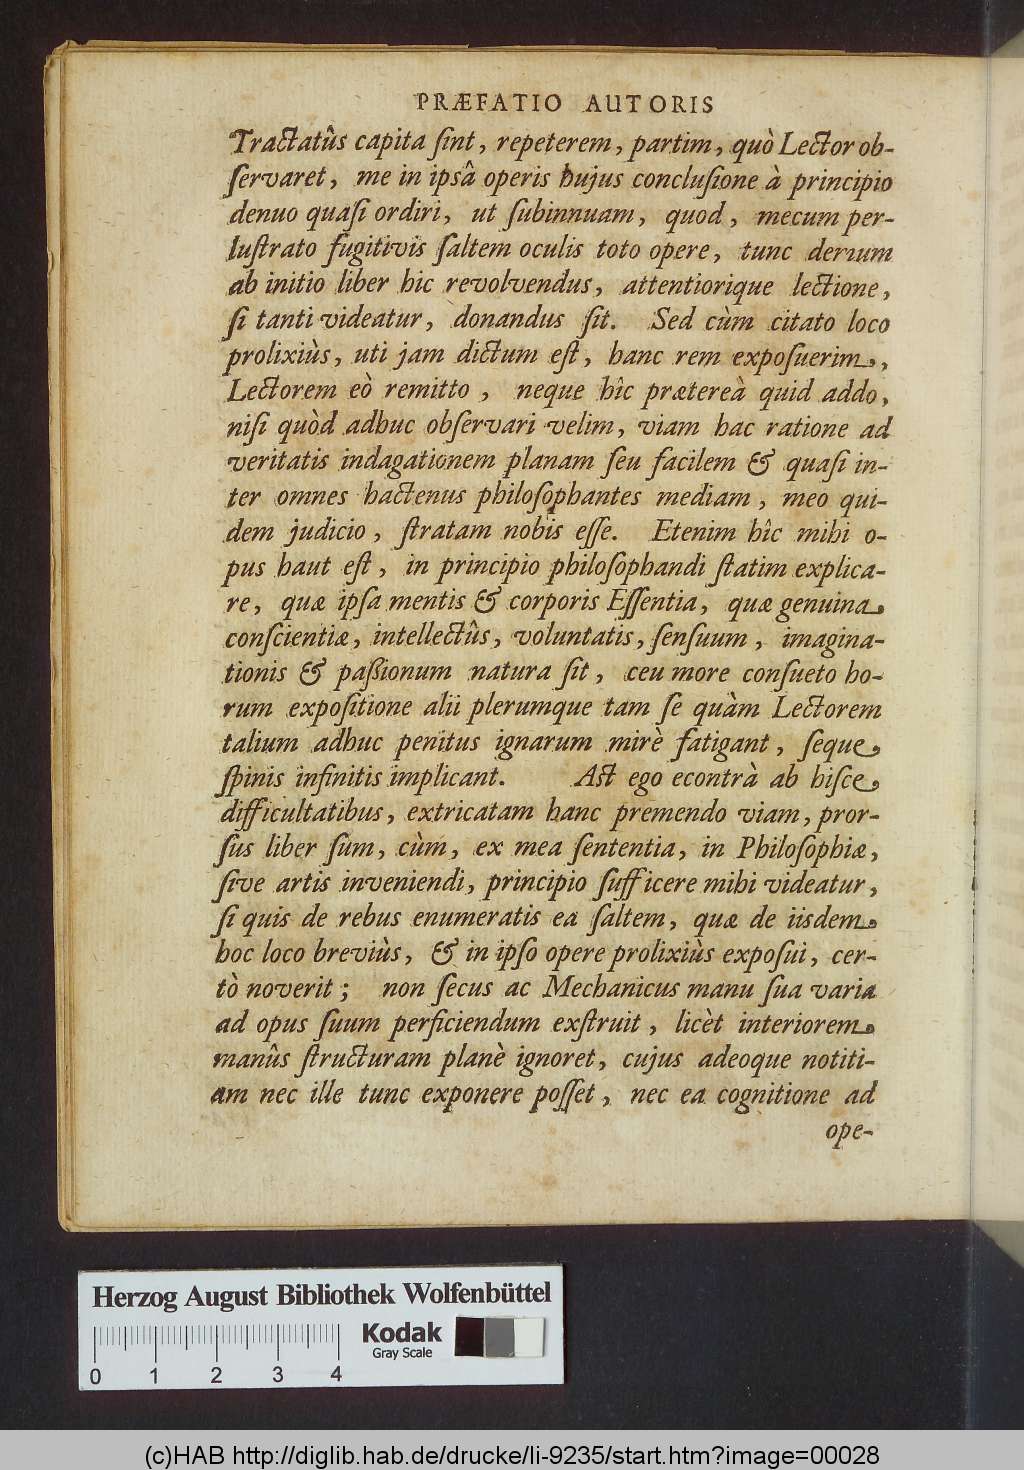 PRÆFATIO AUTORIS
Tractatûs capita ſint, repeterem, partim, quò Lector ob-
ſervaret, me in ipsâ operis hujus concluſione à principio
denuo quaſi ordiri, ut ſubinnuam, quod, mecum per-
luſtrato fugitivis ſaltem oculis toto opere, tunc demum
ab initio liber hic revolvendus, attentiorique lectione,
ſi tanti videatur, donandus ſit. Sed cùm citato loco
prolixiùs, uti jam dictum eſt, hanc rem expoſuerim,
Lectorem eò remitto, neque hîc prætereà quid addo,
niſi quòd adhuc obſervari velim, viam hac ratione ad
veritatis indagationem planam ſeu facilem & quaſi in-
ter omnes hactenus philoſophantes mediam, meo qui-
dem judicio, ſtratam nobis eſſe. Etenim hîc mihi o-
pus haut eſt, in principio philoſophandi ſtatim explica-
re, quæ ipſa mentis & corporis Eſſentia, quæ genuina
conſcientiæ, intellectûs, voluntatis, ſenſuum, imagina-
tionis & paſsionum natura ſit, ceu more conſueto ho-
rum expoſitione alii plerumque tam ſe quàm Lectorem
talium adhuc penitus ignarum mirè fatigant, ſeque
ſpinis infinitis implicant. Aſt ego econtrà ab hiſce
difficultatibus, extricatam hanc premendo viam, pror-
ſus liber ſum, cùm, ex mea ſententia, in Philoſophiæ,
ſive artis inveniendi, principio ſufficere mihi videatur,
ſi quis de rebus enumeratis ea ſaltem, quæ de iisdem
hoc loco breviùs, & in ipſo opere prolixiùs expoſui, cer-
tò noverit; non ſecus ac Mechanicus manu ſua varia
ad opus ſuum perficiendum exſtruit, licèt interiorem
manûs ſtructuram planè ignoret, cujus adeoque notiti-
am nec ille tunc exponere poſſet, nec ea cognitione ad
ope-
Herzog August Bibliothek Wolfenbüttel
Kodak
Gray Scale
0 1 2 3 4
(c)HAB http://diglib.hab.de/drucke/li-9235/start.htm?image=00028